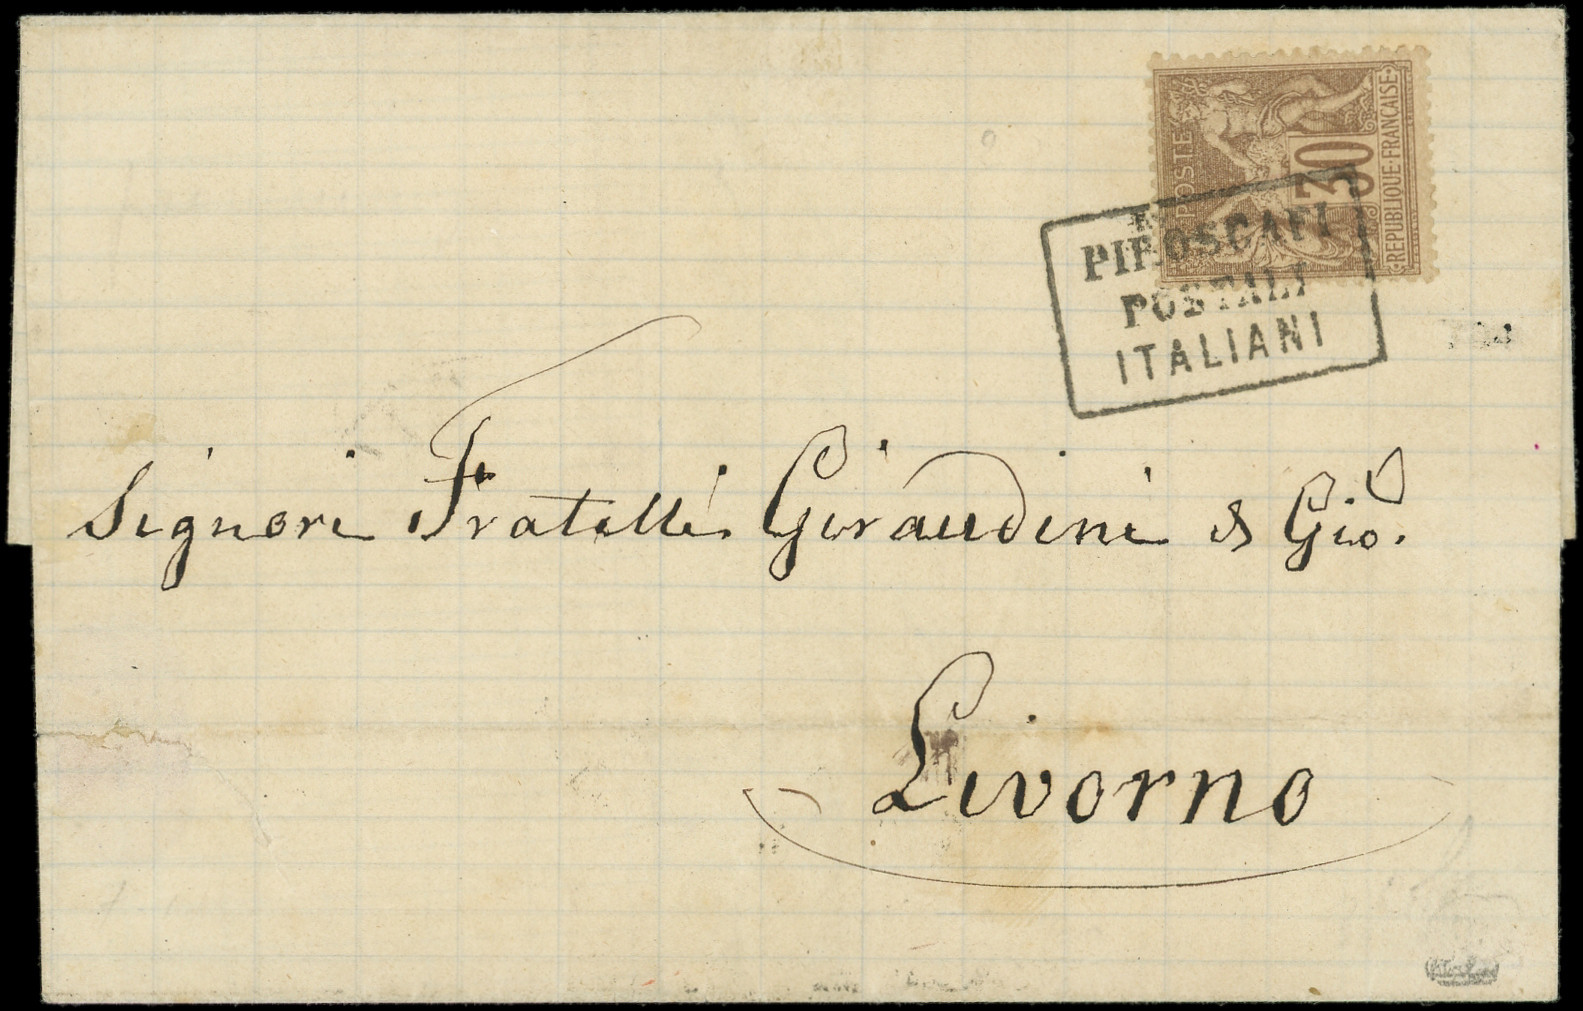 POSTE
30
REPUBLIQUE FRANCAISE
PIROSCAFI
POSTALI
ITALIANI
Signori Fratelli Giraudini & Gio.
Livorno